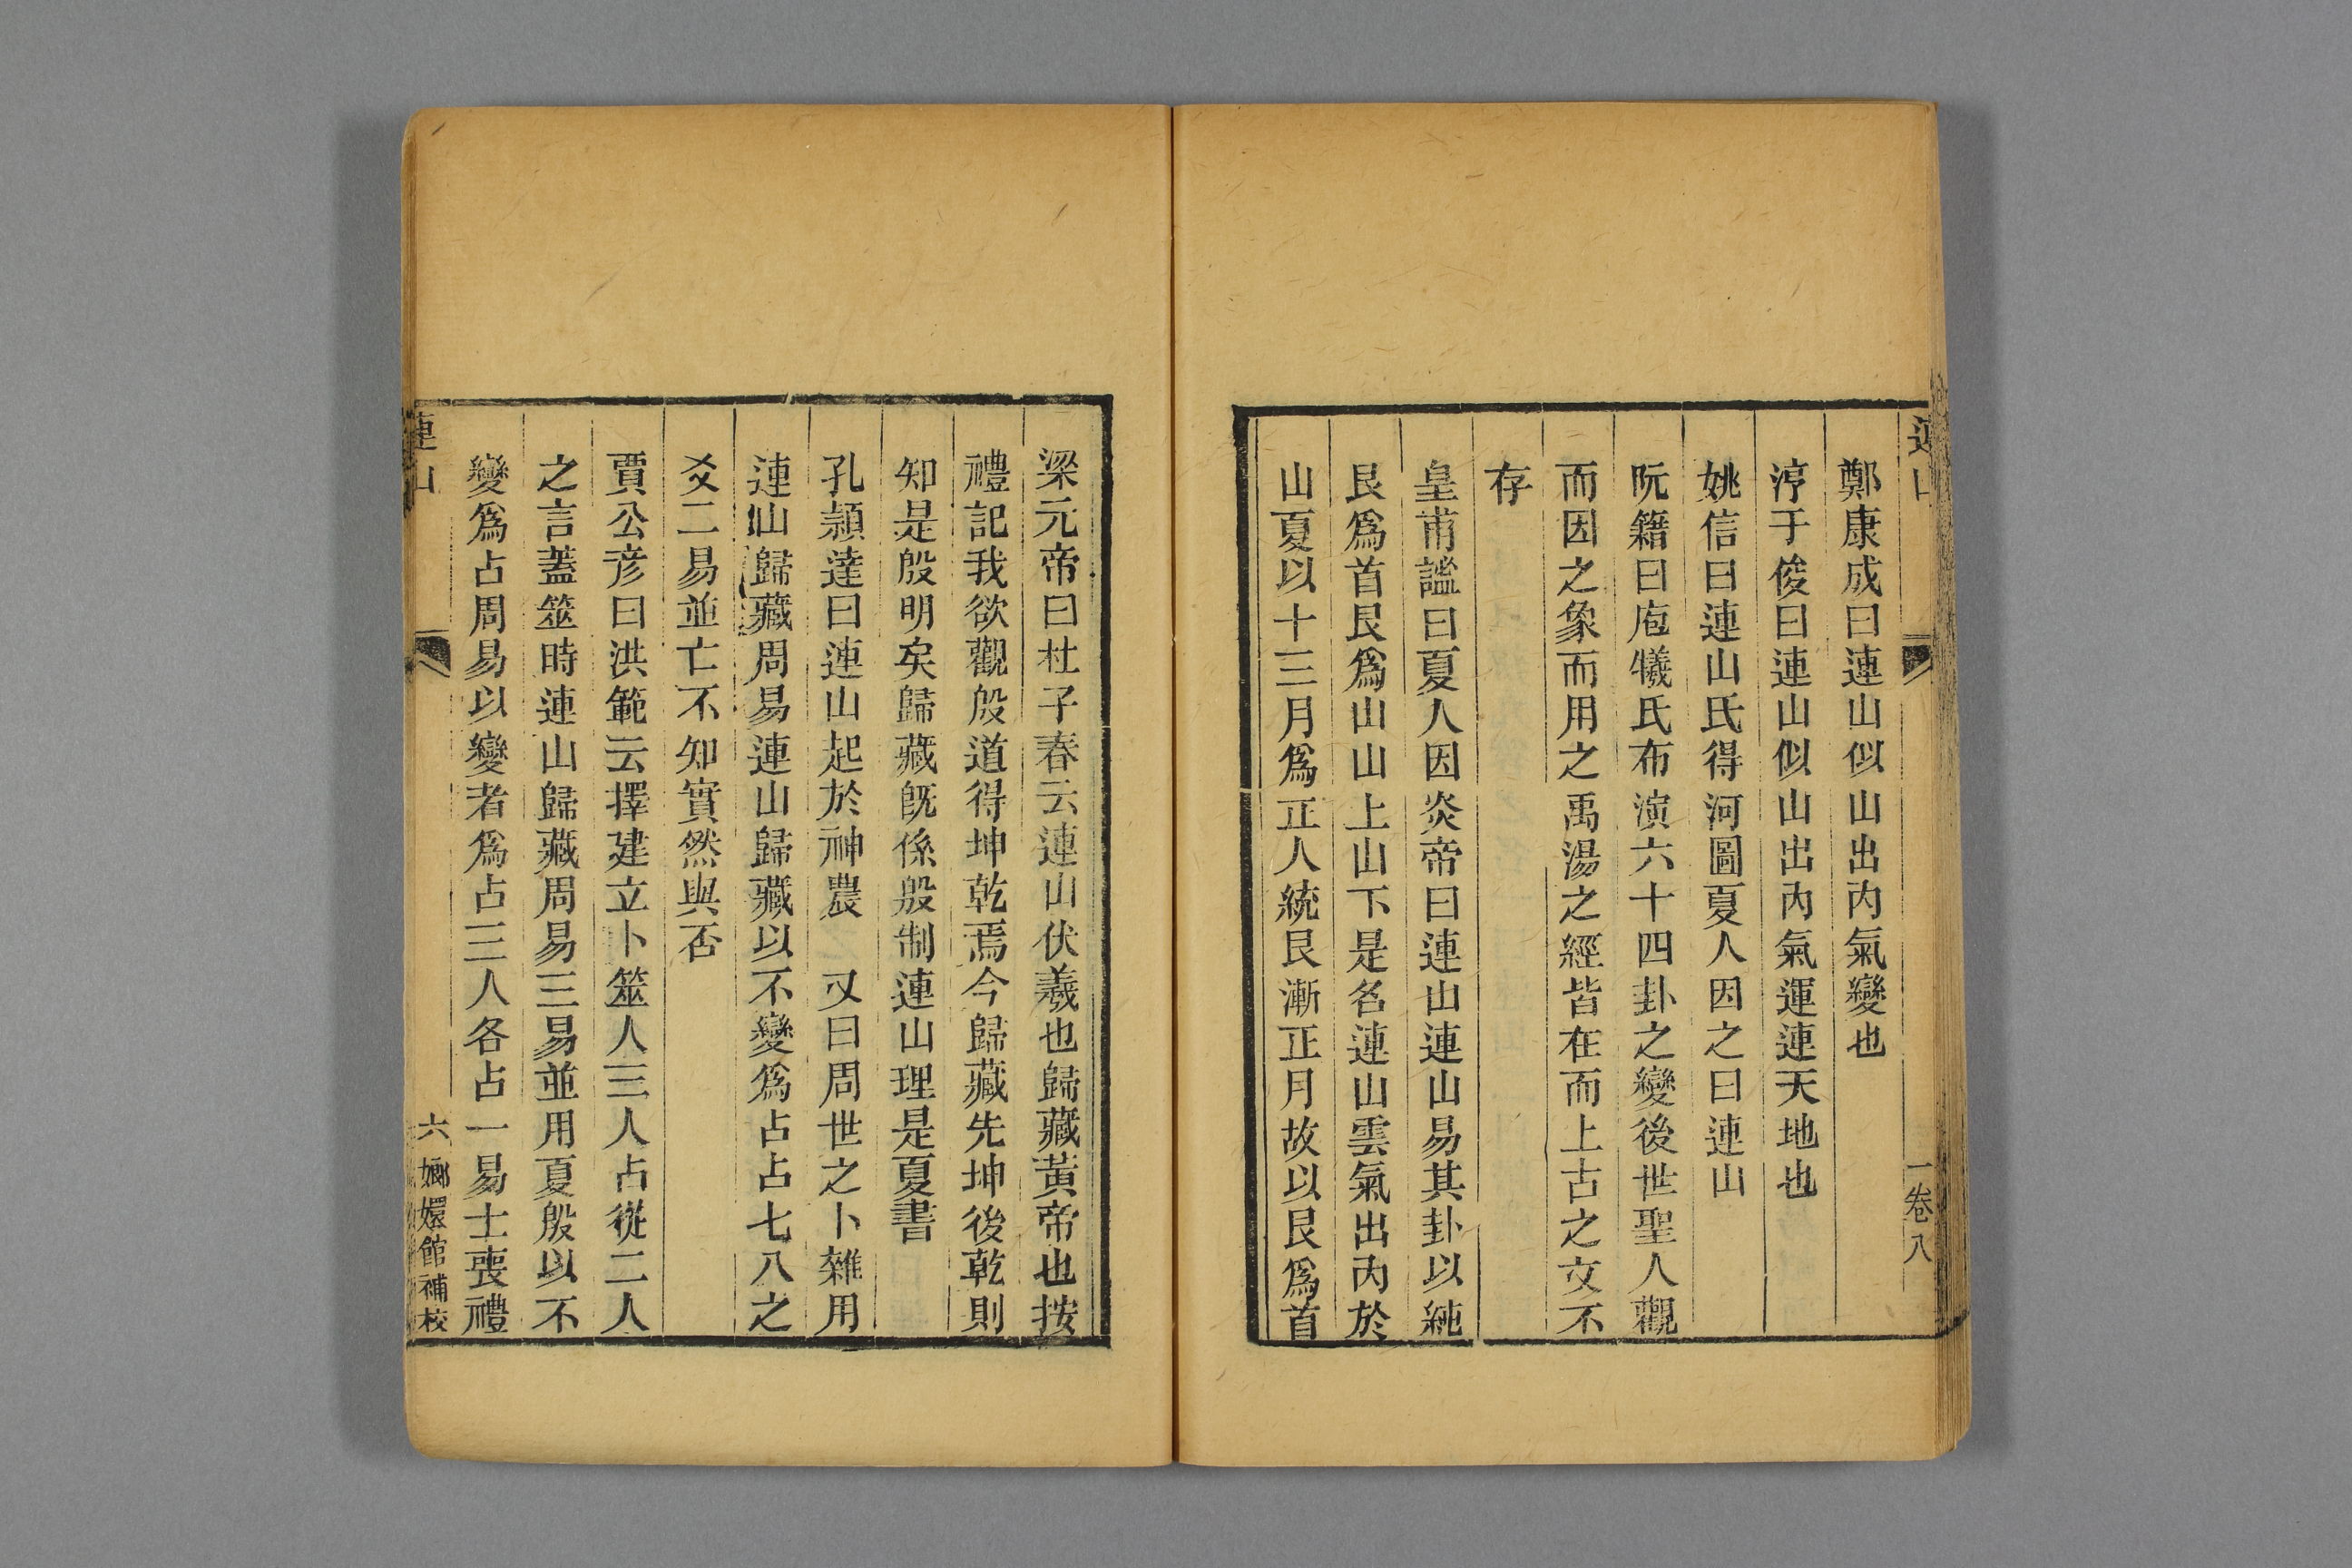 連山
一卷八
鄭康成曰連山似山出內氣變也
淳于俊曰連山似山出內氣運連天地也
姚信曰連山氏得河圖夏人因之曰連山
阮籍曰庖犧氏布演六十四卦之變後世聖人觀
而因之象而用之禹湯之經皆在而上古之文不
存
皇甫謐曰夏人因炎帝曰連山連山易其卦以純
艮爲首艮爲山山上山下是名連山雲氣出內於
山夏以十三月爲正人統艮漸正月故以艮爲首
梁元帝曰杜子春云連山伏羲也歸藏黃帝也按
禮記我欲觀殷道得坤乾焉今歸藏先坤後乾則
知是殷明矣歸藏旣係殷制連山理是夏書
孔潁達曰連山起於神農　又曰周世之卜雜用
連山歸藏周易連山歸藏以不變爲占占七八之
爻二易並亡不知實然與否
賈公彦曰洪範云擇建立卜筮人三人占從二人
之言蓋筮時連山歸藏周易三易並用夏殷以不
變爲占周易以變者爲占三人各占一易士喪禮
連山
六
嫏嬛館補校